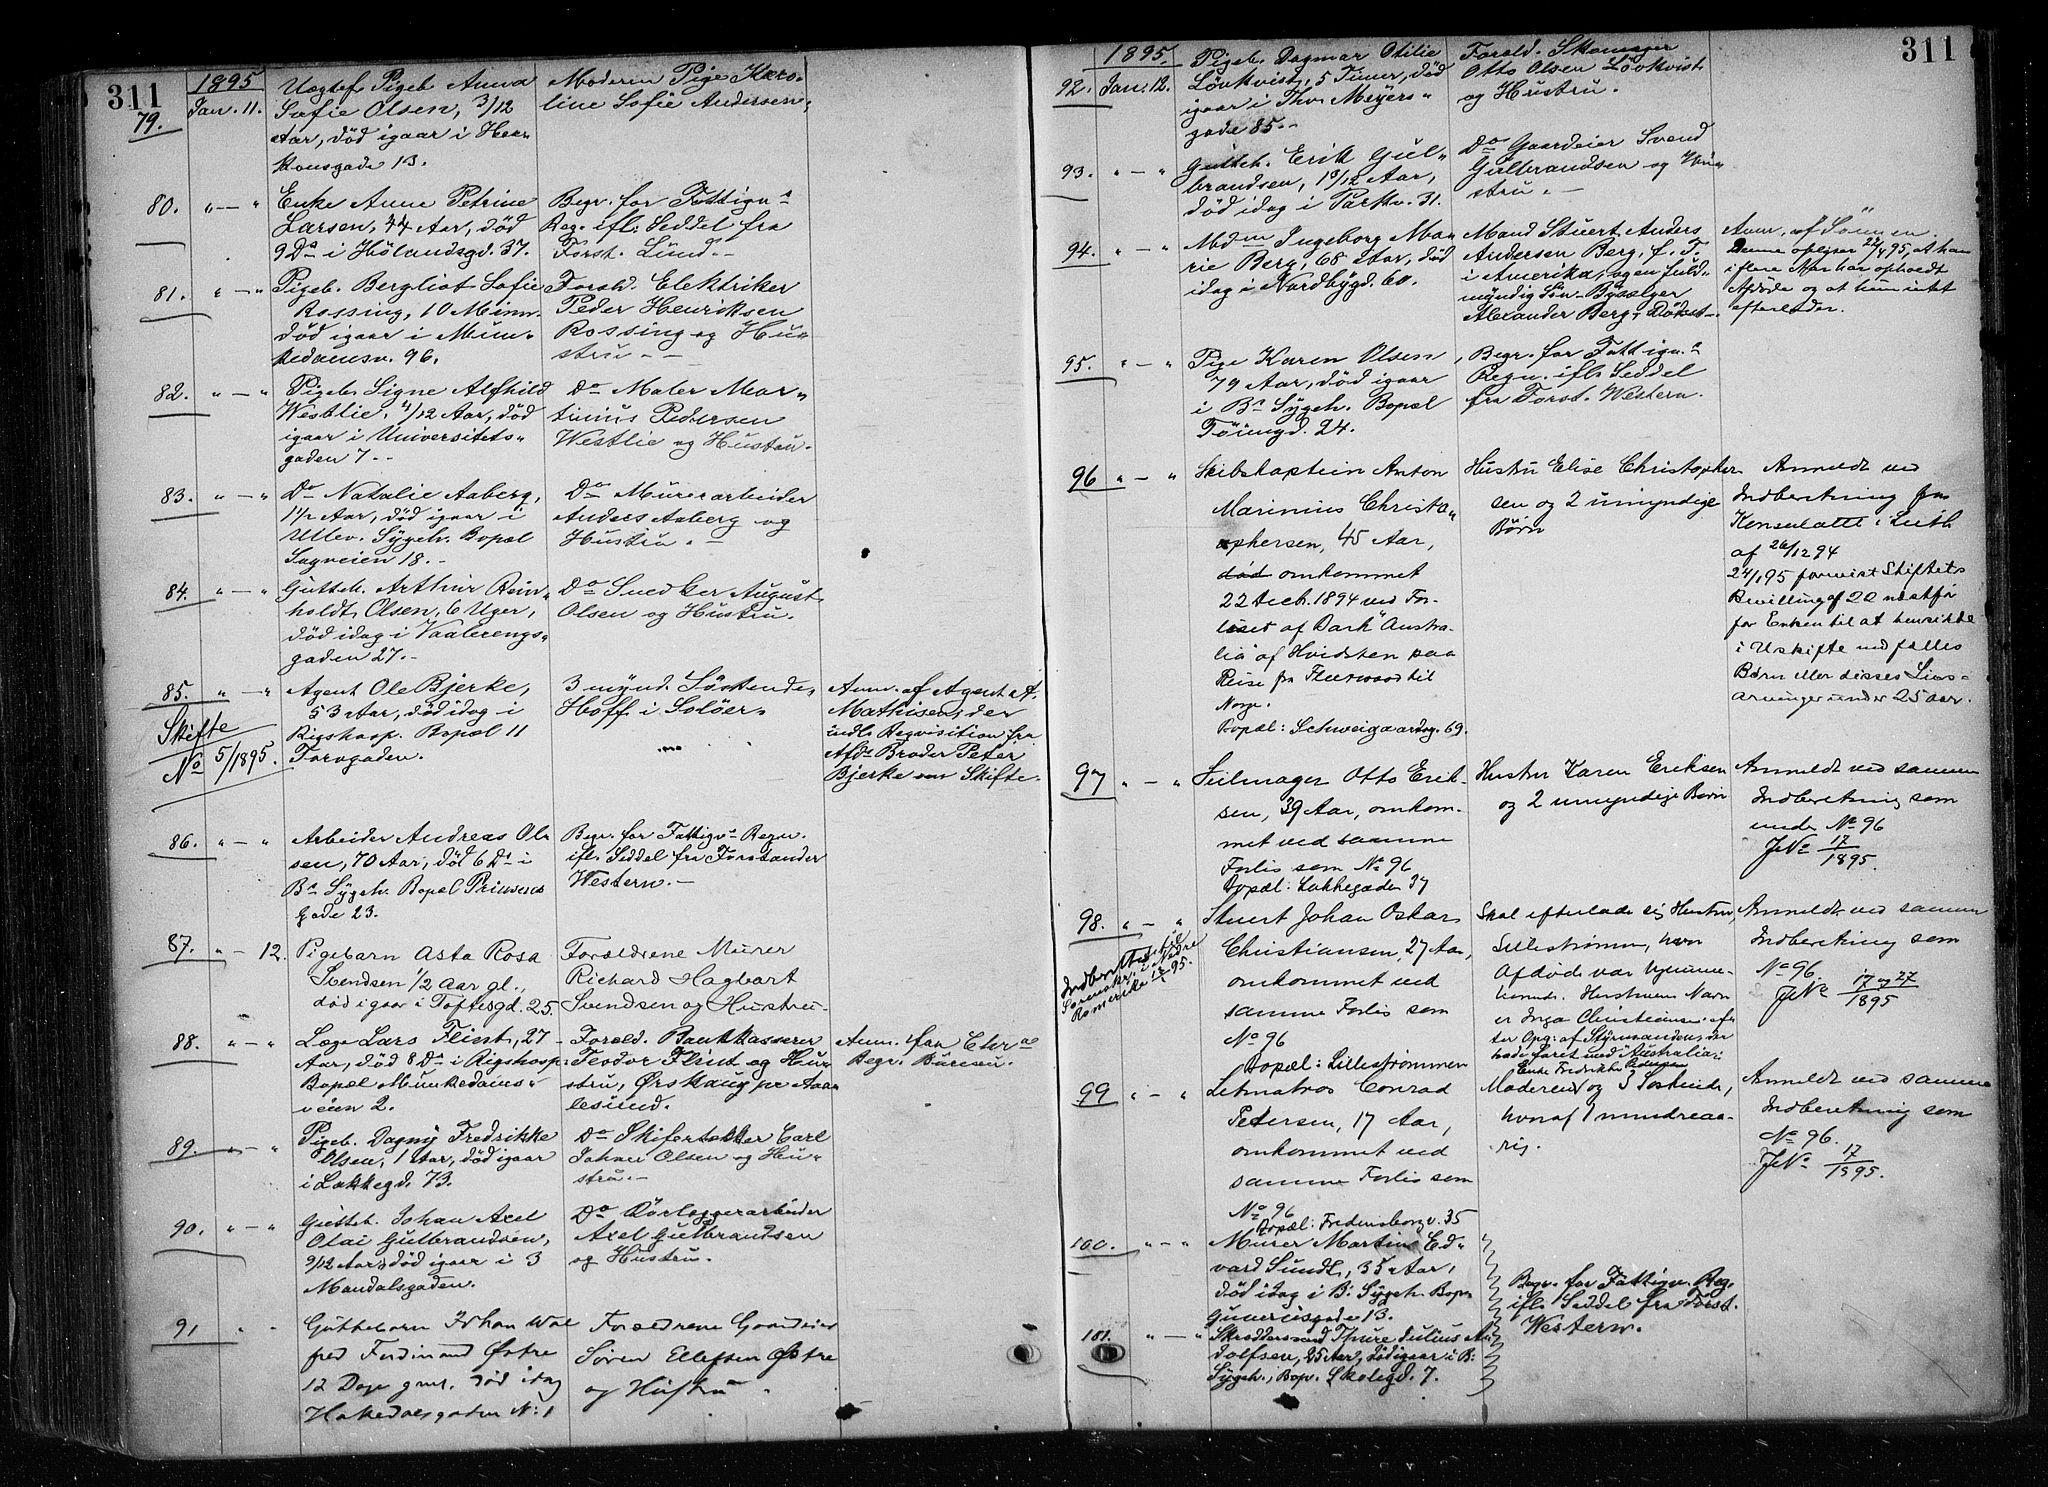 311
1895
79.
Jan. 11.
Uægtef. Pigeb. Anna
Sofie Olsen, 3/12
Aar, død igaar i Haa-
konsgade 13.
Moderen Pige Karo-
line Sofie Andersen,
80. " — "
Enke Anne Petrine
Larsen, 44 Aar, død
9 Ds i Hølandsgd. 37.
Begr. for Fattigv.s
Reg. ifl. Seddel fra
Forst. Lund. —
81. " — "
Pigeb. Bergliot Sofie
Rossing, 10 Minu.
død igaar i Mun-
kedamsv. 96.
Foræld. Elektriker
Peder Henriksen
Rossing og Hu-
stru. —
82. " — "
Pigeb. Signe Alfhild
Westlie, 4/12 Aar, død
igaar i Universitets-
gaden 7. —
Do Maler Mar-
tinius Pedersen
Westlie og Hustru.
83. " — "
Do Natalie Aaberg,
1 1/2 Aar, død igaar i
Ullev. Sygeh. Bopæl
Sagveien 18. —
Do Murerarbeider
Anders Aaberg og
Hustru. —
84. " — "
Gutteb. Arthur Rein-
holdt Olsen, 6 Uger,
død idag i Vaalerengs-
gaden 27. —
Do Snedker August
Olsen og Hustru.
85. " — "
Skifte
No 5/1895.
Agent Ole Bjerke,
53 Aar, død idag i
Rigshosp. Bopæl 11
Torvgaden.
3 mynd. Söskende,
Hoff i Solöer.
Anm. af Agent A.
Mathisen, der
indl. Reqvisition fra
Afds Broder Peter
Bjerke om Skifte.
86. " — "
Arbeider Andreas Ol-
sen, 70 Aar, död 6 Ds i
Bs Sygeh. Bopæl Prinsens
Gade 23.
Begr. for Fattigv.s Regn.
ifl. Seddel fra Forstander
Western. —
87. " — 12.
Pigebarn Asta Rosa
Svendsen 1/2 Aar gl.,
død igaar i Toftesgd. 25.
Forældrene Murer
Richard Hagbart
Svendsen og Hustru.
88. " — "
Læge Lars Flint, 27
Aar, død 8 Ds i Rigshosp.
Bopæl Munkedams-
veien 2.
Foræld. Bankkasserer
Teodor Flint og Hu-
stru, Ørskaug pr Aa-
lesund.
Anm. fra Chr.a
Begr. Büreau.
89. " — "
Pigeb. Dagny Fredrikke
Olsen, 1 Aar, død igaar
i Lakkegd. 73.
Do Skifertækker Carl
Johan Olsen og Hu-
stru. —
90. " — "
Gutteb. Johan Axel
Olai Gulbrandsen,
9/12 Aar, død igaar i 3
Mandalsgaden.
Do Rörlæggerarbeider
Axel Gulbrandsen
og Hustru.
91 " "
Guttebarn Johan Wal
fred Ferdinand Østre
12 Dage gml. død idag
Hakedalsgaden No 1
Forældrene Gaardeier
Søren Ellefsen Østre
og Hustru.
311
1895.
92. Jan. 12.
Pigeb. Dagmar Otilie
Lövkvist, 5 Timer, död
igaar i Thv. Meyers-
gade 85. —
Foræld. Skomager
Otto Olsen Lövkvist
og Hustru.
93. " — "
Gutteb. Erik Gul-
brandsen, 10/12 Aar,
död idag i Parkv. 31.
Do Gaardeier Svend
Gulbrandsen og Hu-
stru. —
94. " — "
Mdm Ingeborg Ma-
rie Berg, 68 Aar, död
idag i Nordbygd. 60.
Mand Stuert Anders
Andersen Berg, f. T.
i Amerika, og en fuld-
myndig Sön - Bysælger
Alexander Berg, Dödsst-
Anm. af Sönnen.
Denne oplyser 22/4 95, at han
i flere Aar har opholdt
Afdøde og at hun intet
efterlader.
95. " — "
Pige Karen Olsen
79 Aar, död igaar
i Bs Sygeh. Bopæl
Töiengd. 24.
Begr. for Fattigv.s
Regn. ifl. Seddel
fra Forst. Western.
96 " — "
Skibskaptein Anton
Marinius Christo-
phersen, 45 Aar,
død omkommet
22 Decb. 1894 ved For-
liset af Bark "Austra-
lia" af Hvidsten paa
Reise fra Fleetwood til
Norge.
Bopæl: Schweigaardsg. 69.
Hustru Elise Christopher
sen og 2 umyndige
Børn
Anmeldt ved
Indberetning fra
Konsulatet i Leith
af 26/12 94
24/1 95 forevist Stiftets
Bevilling af 22 næstfør
for Enken til at hensidde
i Uskifte med fælles
Børn eller disses Livs-
arvinger under 25 aar.
97 " — "
Seilmager Otto Erik-
sen, 39 Aar, omkom-
met ved samme
Forlis som No 96
Bopæl: Lakkegaden 37
Hustru Karen Eriksen
og 2 umyndige Børn
Anmeldt ved samme
Indberetning som
under No 96
JNo 17/1895.
98. " — "
Indberettet til
Sorenskr. i Nedre
Romerike 12/2 95.
Stuert Johan Oskar
Christiansen, 27 Aar,
omkommet ved
samme Forlis som
No 96
Bopæl: Lillestrømmen
Skal efterlade sig Hustru,
Lillestrømmen, hvor
Afdøde var hjemme-
hørende. Hustruens Navn
er Inga Christiansen ef-
ter Opg: af Styrmanden, der
havde faret med "Australia":
Anmeldt ved samme
Indberetning som
No 96.
JNo 17 og 27/1895
99 " — "
Letmatros Conrad
Petersen, 17 Aar,
omkommet ved
samme Forlis som
No 96
Bopæl: Fredensborgv. 35
Enke Fredrikke Pedersen
Moderen og 5 Søskende,
hvoraf 1 mindreaa-
rig.
Anmeldt ved samme
Indberetning som
No 96.
JNo 17/1895.
100. " — "
Murer Martin Ed-
vard Sundt, 35 Aar,
död idag i B: Sygeh. Bop.
Gunerisgade 13.
Begr. for Fattigv. Reg.
ifl. Seddel fra Forst.
Western.
101. " — "
Skræddersvend Thure Julius A-
dolfsen, 25 Aar, död igaar i B:
Sygeh., Bop. Skolegd. 7.